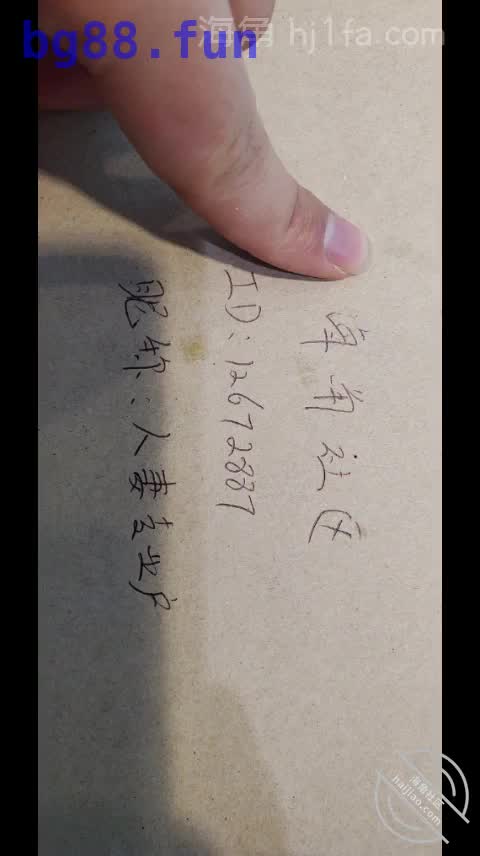 bg88.fun
海角 hj1fa.com
角社区
ID:12672887
昵称:人妻专业户
海角社区
haijiao.com